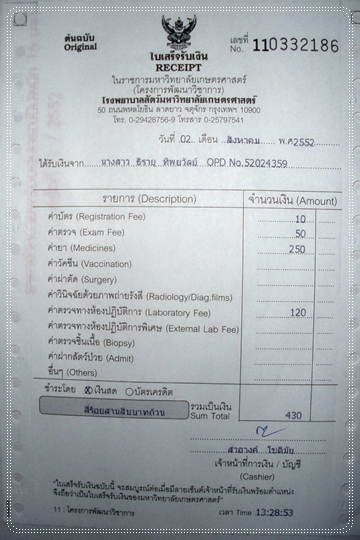 ต้นฉบับ
Original
เลขที่
No. 110332186
ใบเสร็จรับเงิน
RECEIPT
ในราชการมหาวิทยาลัยเกษตรศาสตร์
(โครงการพัฒนาวิชาการ)
โรงพยาบาลสัตว์มหาวิทยาลัยเกษตรศาสตร์
50 ถนนพหลโยธิน ลาดยาว จตุจักร กรุงเทพฯ 10900
โทร. 0-29428756-9 โทรสาร 0-25797541
วันที่ 02 เดือน สิงหาคม พ.ศ2552
ได้รับเงินจาก นางสาว ธิราย ทิพยวัลย์ OPD No.52024359
รายการ (Description) จำนวนเงิน (Amount)
ค่าบัตร (Registration Fee) 10
ค่าตรวจ (Exam Fee) 50
ค่ายา (Medicines) 250
ค่าวัคซีน (Vaccination)
ค่าผ่าตัด (Surgery)
ค่าวินิจฉัยด้วยภาพถ่ายรังสี (Radiology/Diag.films)
ค่าตรวจทางห้องปฏิบัติการ (Laboratory Fee) 120
ค่าตรวจทางห้องปฏิบัติการพิเศษ (External Lab Fee)
ค่าตรวจชิ้นเนื้อ (Biopsy)
ค่าฝากสัตว์ป่วย (Admit)
อื่นๆ (Others)
ชำระโดย เงินสด บัตรเครดิต
สี่ร้อยสามสิบบาทถ้วน
รวมเป็นเงิน
Sum Total 430
สำอางค์ โชติมัย
เจ้าหน้าที่การเงิน / บัญชี
(Cashier)
"ใบเสร็จรับเงินฉบับนี้ จะสมบูรณ์ต่อเมื่อมีลายเซ็นต์เจ้าหน้าที่รับเงินพร้อมตำแหน่ง
จึงถือว่าเป็นใบเสร็จรับเงินของมหาวิทยาลัยเกษตรศาสตร์"
11 : โครงการพัฒนาวิชาการ เวลา Time 13:28:53